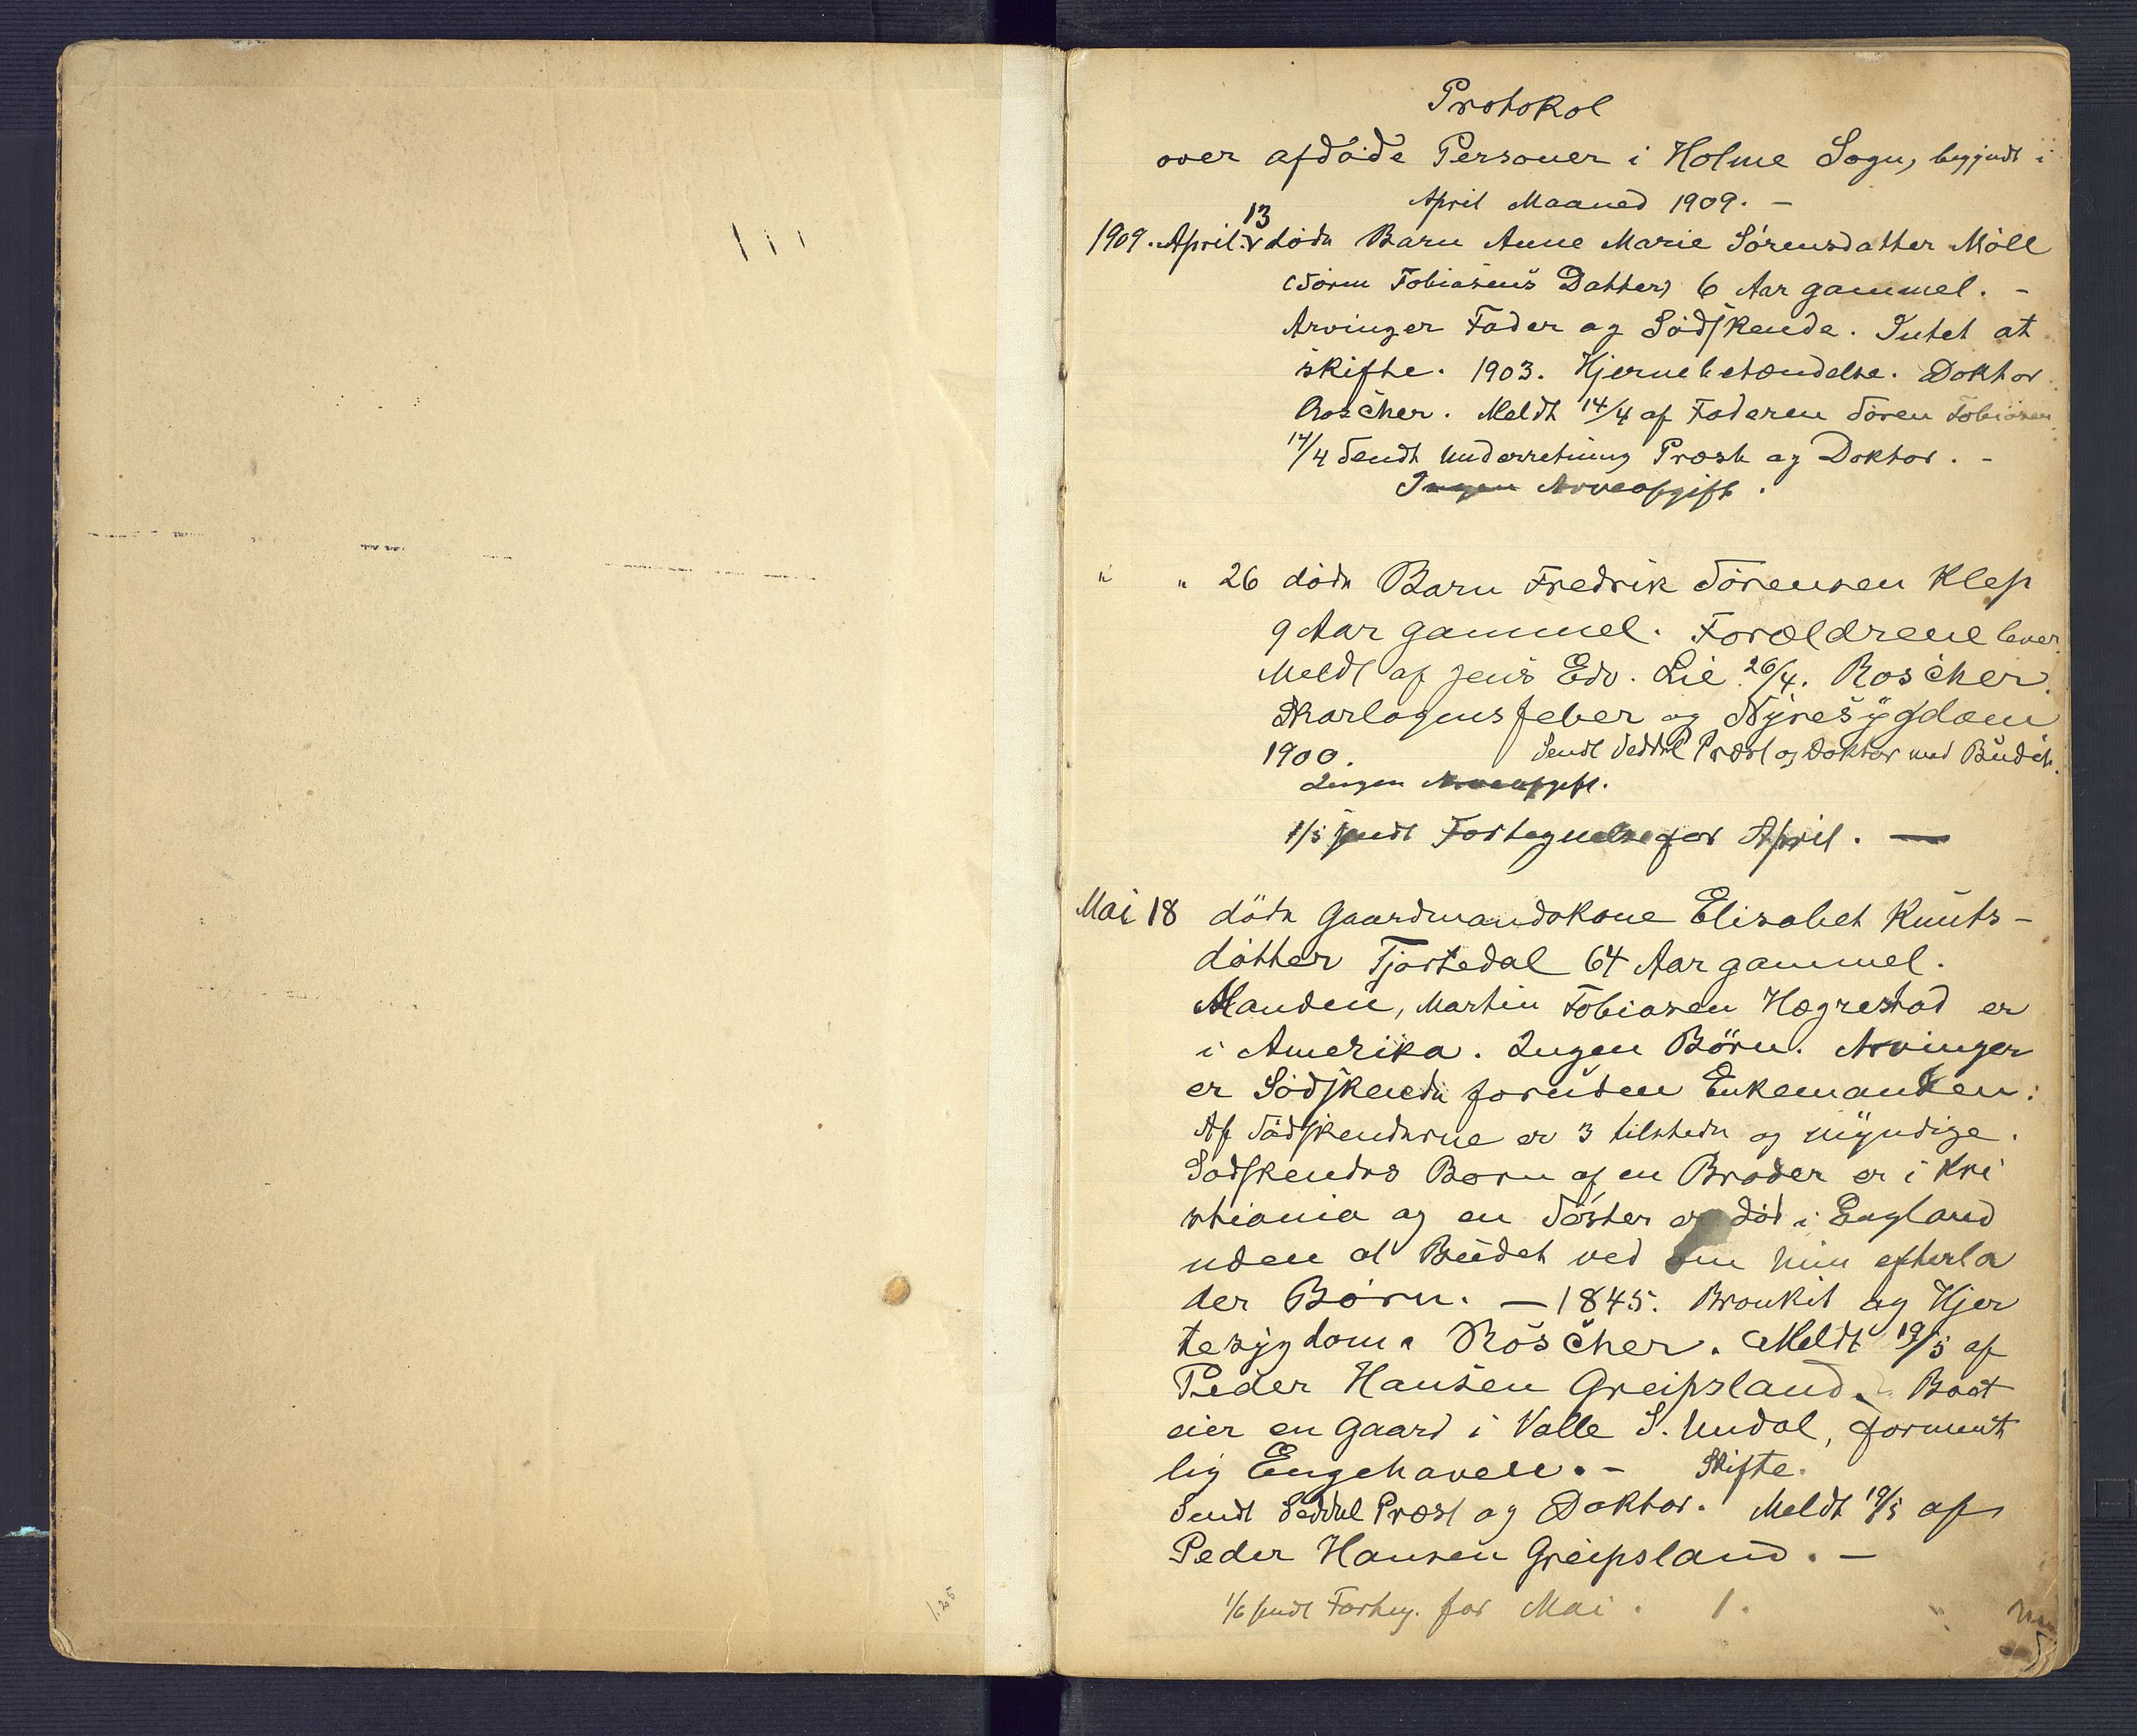 Protokol
over afdöde Personer i Holme Sogn, begyndt i
April Maaned 1909. -
13
1909. April. v döde Barn Anne Marie Sörensdatter Möll
(Sören Tobiasens Datter) 6 Aar gammel. -
Arvinger Fader og Södskende. Intet at
skifte. 1903. Hjernebetændelse. Doktor
Roscher. Meldt 14/4 af Faderen Sören Tobiasen
14/4 Sendt Underretning Præst og Doktor. -
Ingen Arveafgift.
" " 26 döde Barn Fredrik Sörensen Klep
9 Aar gammel. Forældrene lever.
Meldt af Jens Edv. Lie 26/4. Roscher.
Skarlagensfeber og Nyresygdom
1900. Sendt Seddel Præst og Doktor med Budet.
Ingen Arveafgift.
1/5 sendt Fortegnelse for April. —
Mai 18 döde Gaardmandskone Elisabet Knuts-
datter Tjortedal 64 Aar gammel.
Manden, Martin Tobiasen Hægrestad er
i Amerika. Ingen Börn. Arvinger
er Södskende foruden Enkemanden:
Af Södskenderne er 3 tilstede og myndige.
Södskendes Börn af en Broder er i Kri
stiania og en Söster er död i England
uden at Budet ved om hun efterla
der Börn. — 1845. Bronkit og Hjer
tesygdom. Roscher. Meldt 19/5 af
Peder Hansen Greipsland. Boet
eier en Gaard i Valle S. Undal, forment
lig Engehaven. - Skifte.
Sendt Seddel Præst og Doktor. Meldt 19/5 af
Peder Hansen Greipsland. -
1/6 sendt Forteg. for Mai. 1.
1.25